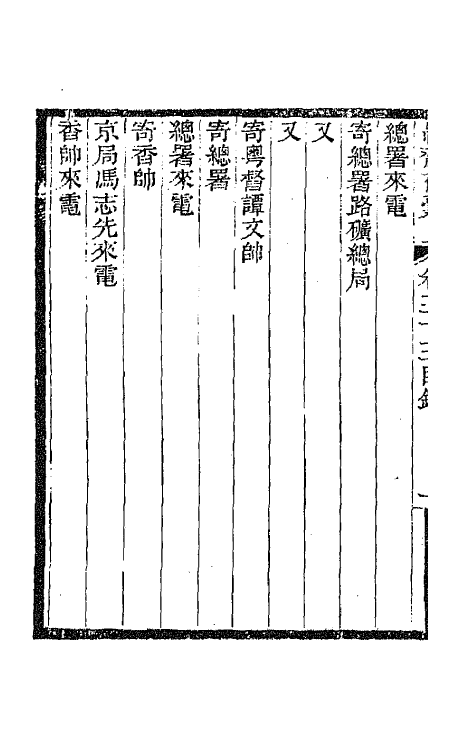 總署來電
寄總署路礦總局
又
又
寄粵督譚文帥
寄總署
總署來電
寄香帥
京局馮志先來電
香帥來電
卷三十三目錄